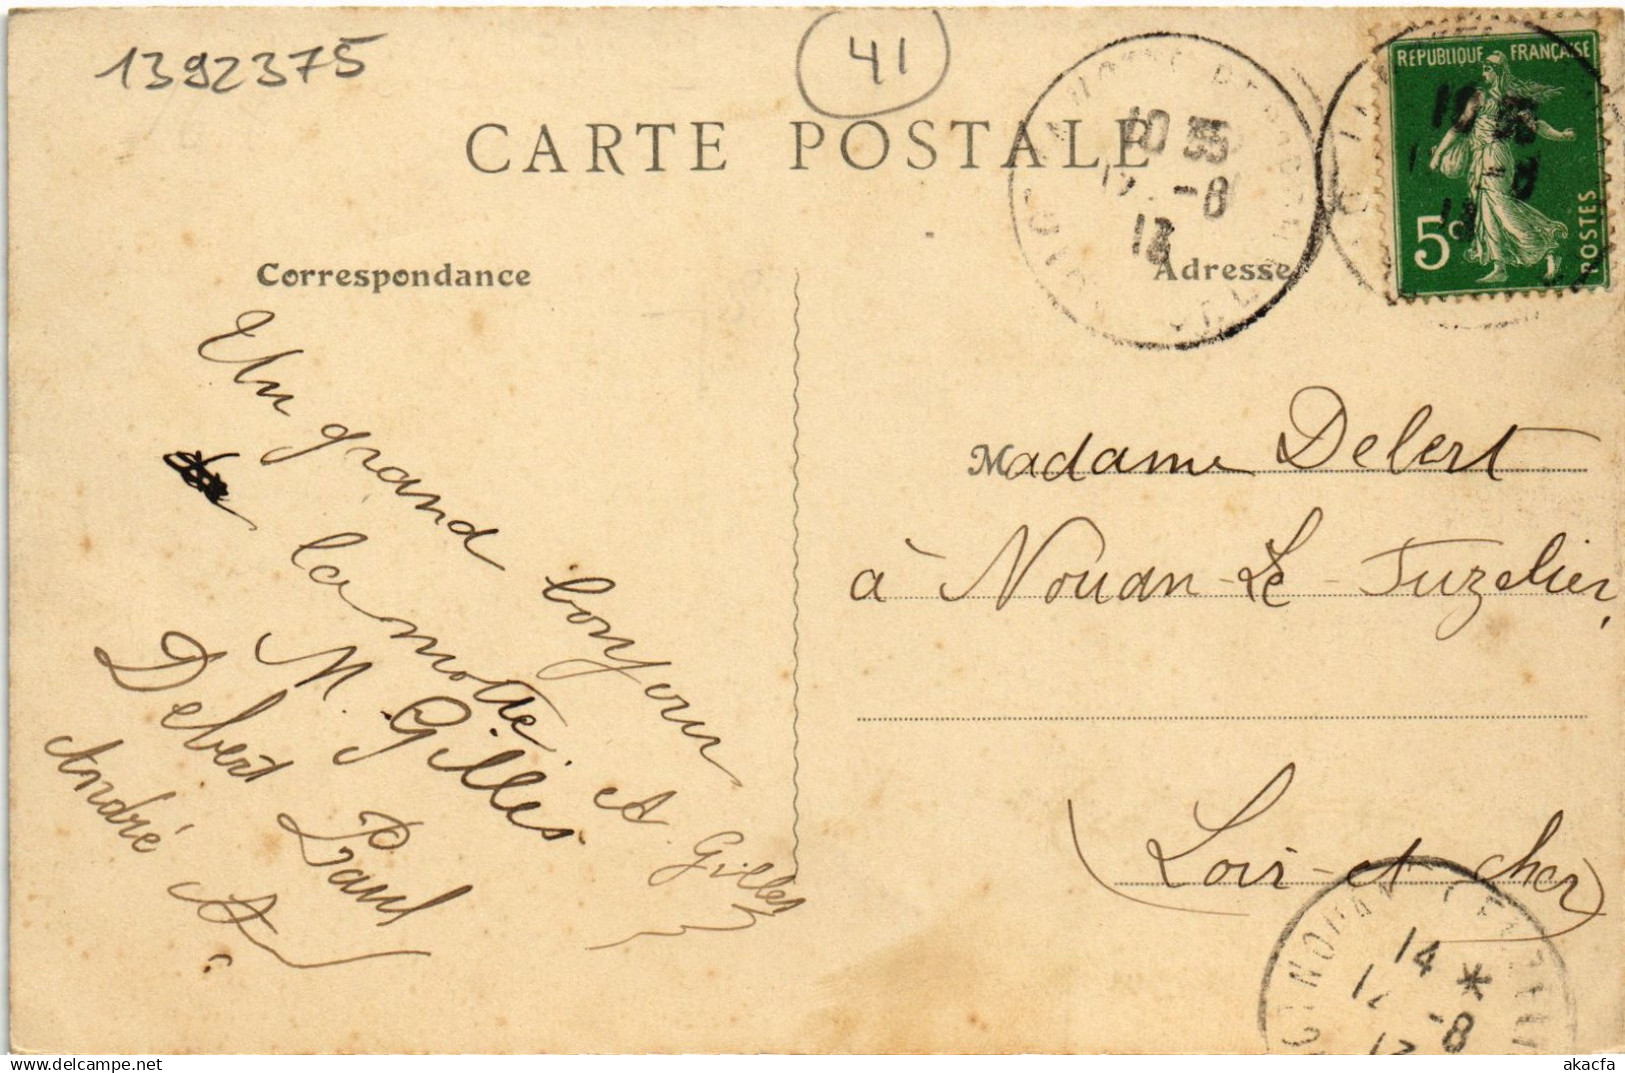 1392375
41
CARTE POSTALE
10 35
12 -8
13
RÉPUBLIQUE FRANÇAISE
10 35
-8
13
5c
POSTES
Correspondance
Adresse
Un grand bonjour
de la motte
M. Gilles et A. Gilles
Debert Paul
André
Madame Debert
à Nouan-Le-Fuzelier,
(Loir-et-Cher)
NOUAN LE FUZELIER
14 *
12 -8
akacfa